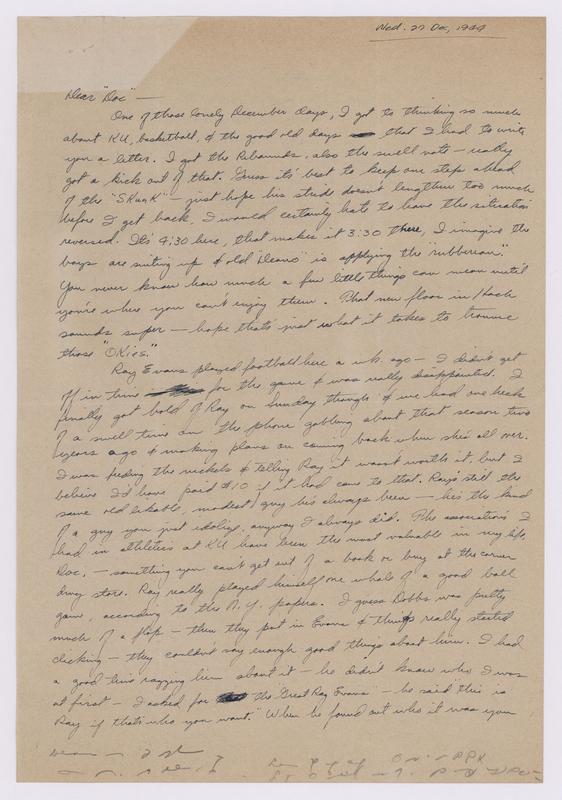 Wed. 27 Dec, 1944
Dear "Doc" —
One of those lonely December days, I got to thinking so much
about KU, basketball, & the good old days that I had to write
you a letter. I got the Rebounds, also the swell note — really
got a kick out of that. Guess it's best to keep one step ahead
of the "Skunk" — just hope his stride doesn't lengthen too much
before I get back, I would certainly hate to have the situation
reversed. It's 4:30 here, that makes it 3:30 there, I imagine the
boys are suiting up & old "Deano" is applying the "rubberoun."
You never know how much a few little things can mean until
you're where you can't enjoy them. That new floor in Hoch
sounds super — hope that's just what it takes to trounce
those "Okies."
Ray Evans played football here a wk. ago — I didn't get
off in time for the game & was really disappointed. I
finally got hold of Ray on Sunday though & we had one heck
of a swell time on the phone gabbing about that season two
years ago & making plans on coming back when she's all over.
I was feeding the nickels & telling Ray it wasn't worth it, but I
believe I'd have paid $10 if it had came to that. Ray's still the
same old likable, modest guy he's always been — he's the kind
of a guy you just idolize, anyway I always did. The associations I
had in athletics at KU have been the most valuable in my life,
Doc, — something you can't get out of a book or buy at the corner
drug store. Ray really played himself one whale of a good ball
game, according to the N.Y. papers. I guess Dobbs was pretty
much of a flop — then they put in Evans & things really started
clicking — they couldn't say enough good things about him. I had
a good time razzing him about it — he didn't know who I was
at first — I asked for "the Great Ray Evans" — he said "this is
Ray if that's who you want." When he found out who it was you